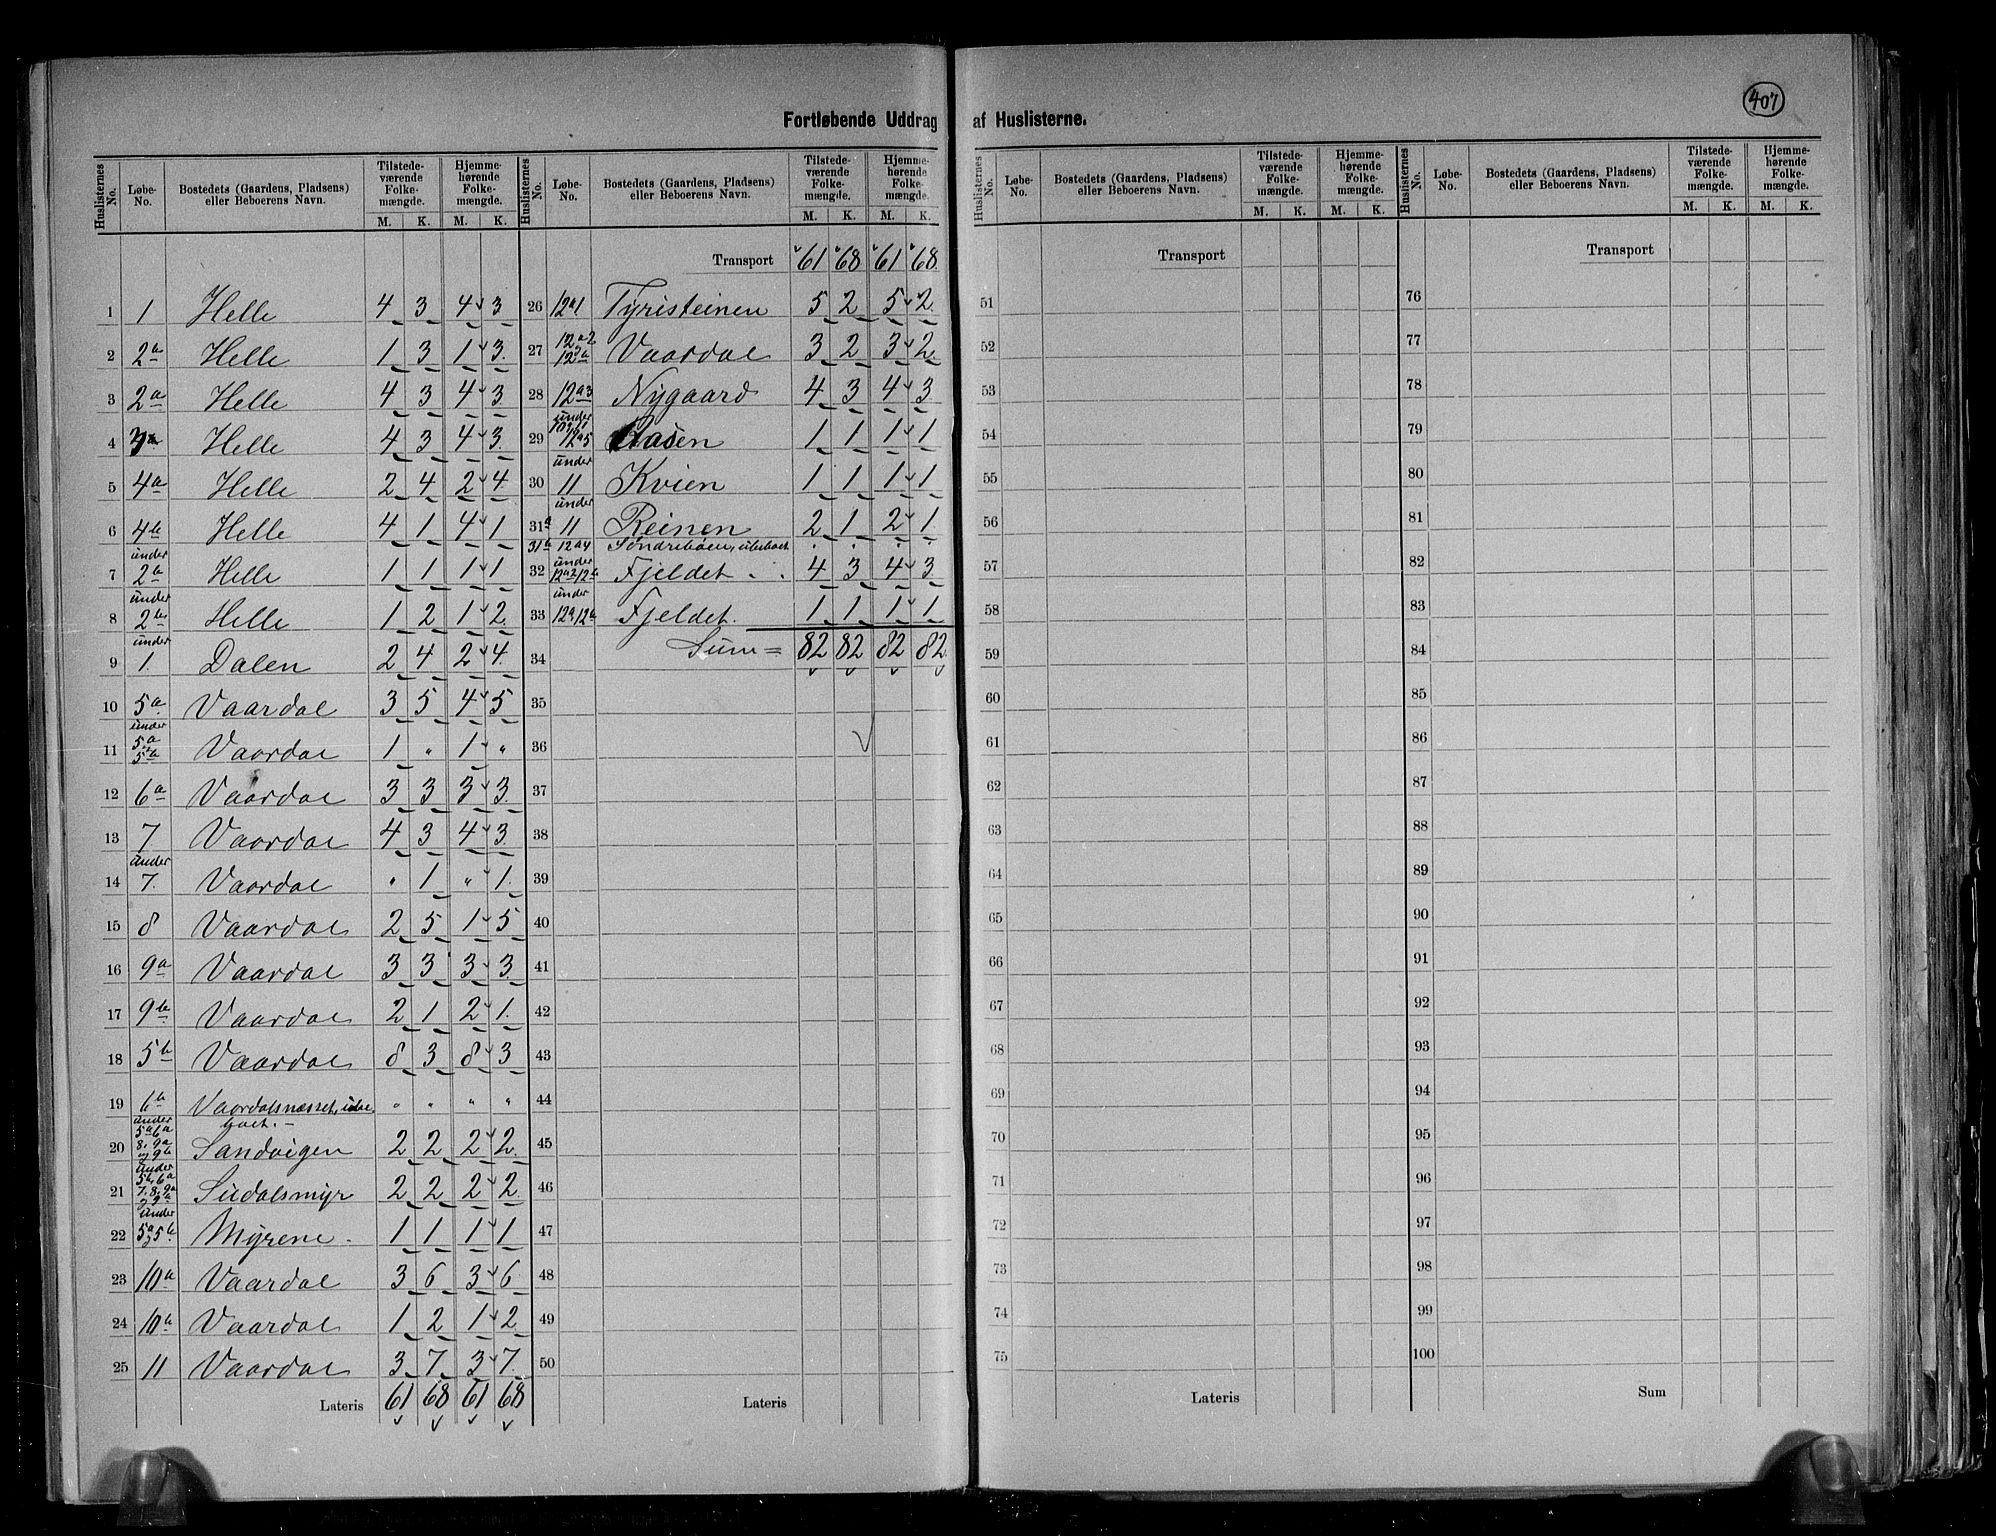 407
Fortløbende Uddrag af Huslisterne.
Huslisternes No. | Løbe-No. | Bostedets (Gaardens, Pladsens) eller Beboerens Navn. | Tilstedeværende Folkemængde. M. K. | Hjemmehørende Folkemængde. M. K.
1 | 1 | Helle | 4 | 3 | 4 | 3
2 | 2a | Helle | 1 | 3 | 1 | 3
3 | 2a | Helle | 4 | 3 | 4 | 3
4 | 3a | Helle | 4 | 3 | 4 | 3
5 | 4a | Helle | 2 | 4 | 2 | 4
6 | 4b | Helle | 4 | 1 | 4 | 1
7 | under 2b | Helle | 1 | 1 | 1 | 1
8 | under 2b | Helle | 1 | 2 | 1 | 2
9 | under 1. | Dalen | 2 | 4 | 2 | 4
10 | 5a | Vaardal | 3 | 5 | 4 | 5
11 | under 5a | Vaardal | 1 | " | 1 | "
12 | 6a | Vaardal | 3 | 3 | 3 | 3
13 | 7 | Vaardal | 4 | 3 | 4 | 3
14 | under 7. | Vaardal | " | 1 | " | 1
15 | 8 | Vaardal | 2 | 5 | 1 | 5
16 | 9a | Vaardal | 3 | 3 | 3 | 3
17 | 9b | Vaardal | 2 | 1 | 2 | 1
18 | 5b | Vaardal | 8 | 3 | 8 | 3
19 | 6b | Vaardalsnæsset, ube
boet. | " | " | " | "
20 | under 5a 6a 8, 9a og 9b | Sandvigen | 2 | 2 | 2 | 2
21 | under 5b, 6a 7, 8, 9a | Sudalsmyr | 2 | 2 | 2 | 2
22 | under 5a og 5b | Myrene | 1 | 1 | 1 | 1
23 | 10a | Vaardal | 3 | 6 | 3 | 6
24 | 10b | Vaardal | 1 | 2 | 1 | 2
25 | 11 | Vaardal | 3 | 7 | 3 | 7
Lateris | 61 | 68 | 61 | 68
Huslisternes No. | Løbe-No. | Bostedets (Gaardens, Pladsens) eller Beboerens Navn. | Tilstedeværende Folkemængde. M. K. | Hjemmehørende Folkemængde. M. K.
Transport | 61 | 68 | 61 | 68
26 | 12a1 | Tyristeinen | 5 | 2 | 5 | 2
27 | 12a2 | Vaardal | 3 | 2 | 3 | 2
28 | 12a3 | Nygaard | 4 | 3 | 4 | 3
29 | under 12a5 | Aasen | 1 | 1 | 1 | 1
30 | under 11 | Kvien | 1 | 1 | 1 | 1
31a | under 11 | Reinen | 2 | 1 | 2 | 1
31b | 12a4 | Søndrebøen, ubeboet
32 | under 12a2 12b | Fjeldet | 4 | 3 | 4 | 3
33 | under 12a 12b | Fjeldet. | 1 | 1 | 1 | 1
34 | Sum = | 82 | 82 | 82 | 82
35
36
37
38
39
40
41
42
43
44
45
46
47
48
49
50
Lateris
Huslisternes No. | Løbe-No. | Bostedets (Gaardens, Pladsens) eller Beboerens Navn. | Tilstedeværende Folkemængde. M. K. | Hjemmehørende Folkemængde. M. K.
Transport
51
52
53
54
55
56
57
58
59
60
61
62
63
64
65
66
67
68
69
70
71
72
73
74
75
Lateris
Huslisternes No. | Løbe-No. | Bostedets (Gaardens, Pladsens) eller Beboerens Navn. | Tilstedeværende Folkemængde. M. K. | Hjemmehørende Folkemængde. M. K.
Transport
76
77
78
79
80
81
82
83
84
85
86
87
88
89
90
91
92
93
94
95
96
97
98
99
100
Sum